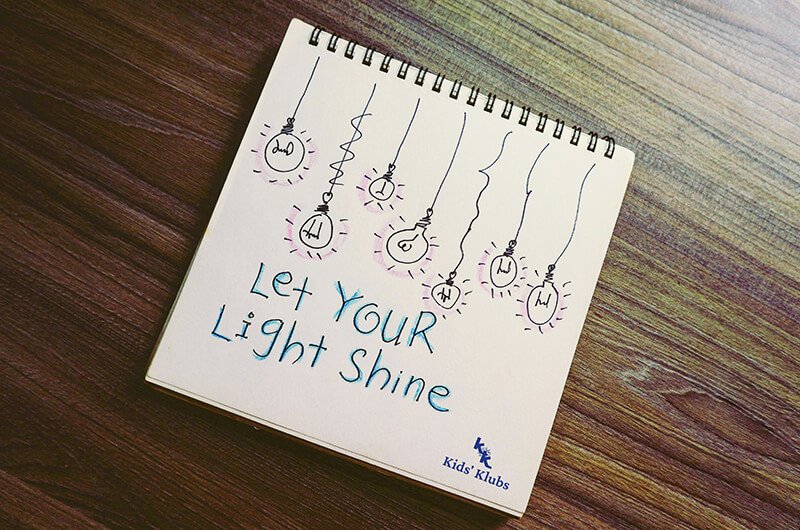 Let YOUR
Light Shine
KK
Kids' Klubs